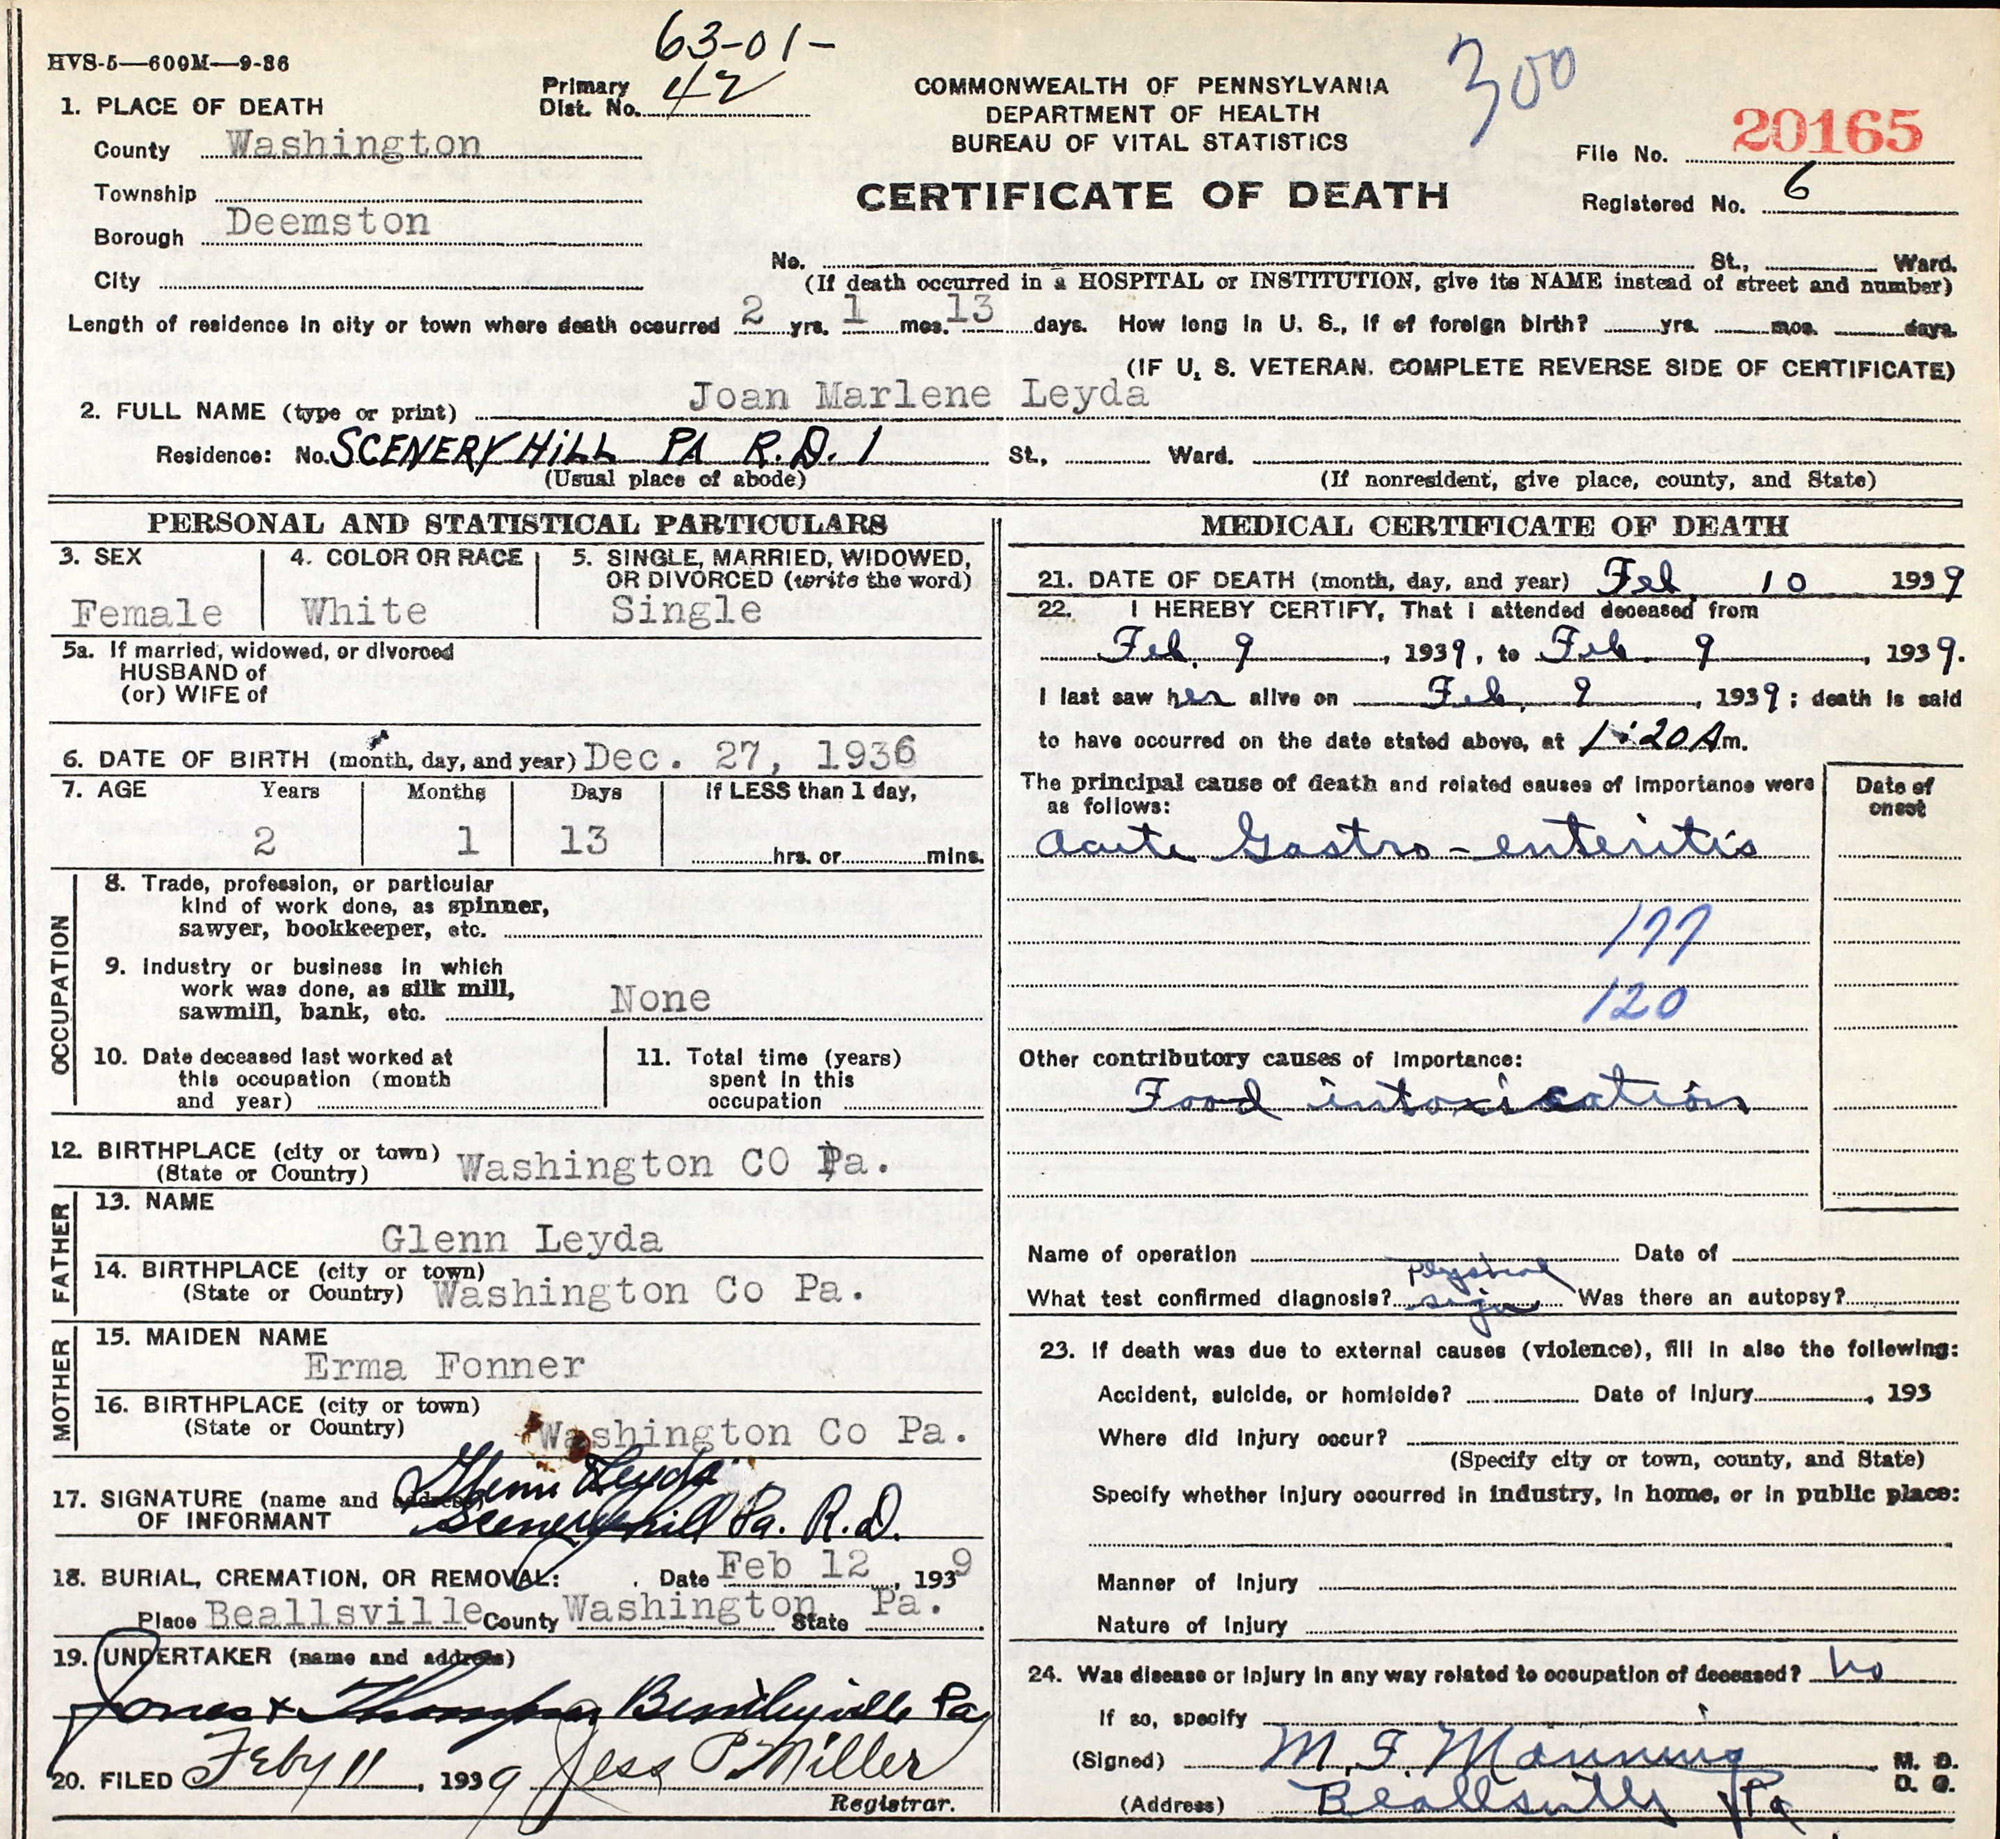 HVS-5—600M—9-36
63-01-
Primary
Dist. No. 42
COMMONWEALTH OF PENNSYLVANIA
DEPARTMENT OF HEALTH
BUREAU OF VITAL STATISTICS
300
20165
File No.
CERTIFICATE OF DEATH
Registered No. 6
1. PLACE OF DEATH
County Washington
Township
Borough Deemston
City
No. St., Ward.
(If death occurred in a HOSPITAL or INSTITUTION, give its NAME instead of street and number)
Length of residence in city or town where death occurred 2 yrs. 1 mos. 13 days. How long in U. S., if of foreign birth? yrs. mos. days.
(IF U. S. VETERAN. COMPLETE REVERSE SIDE OF CERTIFICATE)
2. FULL NAME (type or print) Joan Marlene Leyda
Residence: No. SCENERY HILL PA R.D. 1 St., Ward.
(Usual place of abode) (If nonresident, give place, county, and State)
PERSONAL AND STATISTICAL PARTICULARS
3. SEX 4. COLOR OR RACE 5. SINGLE, MARRIED, WIDOWED,
OR DIVORCED (write the word)
Female White Single
5a. If married, widowed, or divorced
HUSBAND of
(or) WIFE of
6. DATE OF BIRTH (month, day, and year) Dec. 27, 1936
7. AGE Years Months Days If LESS than 1 day,
2 1 13 hrs. or mins.
OCCUPATION
8. Trade, profession, or particular
kind of work done, as spinner,
sawyer, bookkeeper, etc.
9. Industry or business in which
work was done, as silk mill,
sawmill, bank, etc. None
10. Date deceased last worked at
this occupation (month
and year)
11. Total time (years)
spent in this
occupation
12. BIRTHPLACE (city or town) Washington CO Pa.
(State or Country)
FATHER
13. NAME
Glenn Leyda
14. BIRTHPLACE (city or town)
(State or Country) Washington Co Pa.
MOTHER
15. MAIDEN NAME
Erma Fonner
16. BIRTHPLACE (city or town)
(State or Country) Washington Co Pa.
17. SIGNATURE (name and address) Glenn Leyda
OF INFORMANT Sceneryhill Pa. R.D.
18. BURIAL, CREMATION, OR REMOVAL: Date Feb 12, 1939
Place Beallsville County Washington State Pa.
19. UNDERTAKER (name and address)
Jones & Thompson Bentleyville Pa
20. FILED Feby 11, 1939 Jess P. Miller
Registrar.
MEDICAL CERTIFICATE OF DEATH
21. DATE OF DEATH (month, day, and year) Feb. 10 1939
22. I HEREBY CERTIFY, That I attended deceased from
Feb. 9, 1939, to Feb. 9, 1939.
I last saw her alive on Feb. 9, 1939; death is said
to have occurred on the date stated above, at 1:20 Am.
The principal cause of death and related causes of importance were
as follows:
Date of
onset
Acute Gastro-enteritis
177
120
Other contributory causes of importance:
Food intoxication
Name of operation Date of
What test confirmed diagnosis? Physical sign Was there an autopsy?
23. If death was due to external causes (violence), fill in also the following:
Accident, suicide, or homicide? Date of injury , 193
Where did injury occur?
(Specify city or town, county, and State)
Specify whether injury occurred in industry, in home, or in public place:
Manner of injury
Nature of injury
24. Was disease or injury in any way related to occupation of deceased? no
If so, specify
(Signed) M. F. Manning M. D.
D. O.
(Address) Beallsville Pa